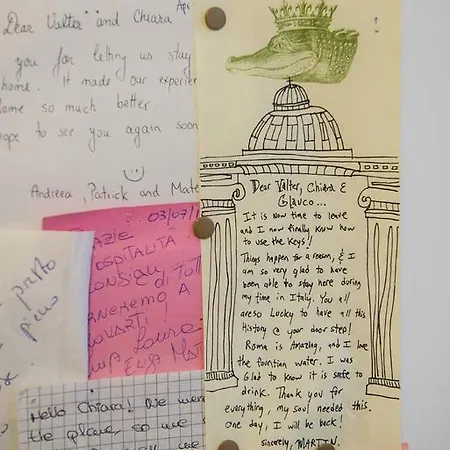 Dear Valter and Chiara
you for letting us stay
home. It made our experien
ome so much better.
ope to see you again soon
Andreea, Patrick and Mate
03/07/1
AZIE
OSPITALITÀ
CONSIGLI
DI TUTT
RNEREMO A
OVARTI!
Laura
ELISA
Hello Chiara! We were
the place, so we s
Dear Valter, Chiara &
Glauco...
It is now time to leave
and I now finally know how
to use the keys!
Things happen for a reason, & I
am so very glad to have
been able to stay here during
my time in Italy. You all
are so Lucky to have all this
History @ your door step!
Roma is Amazing, and I love
the fountian water. I was
Glad to know it is safe to
drink. Thank you for
everything, my soul needed this.
one day, I will be back!
sincerely, MARTIN.